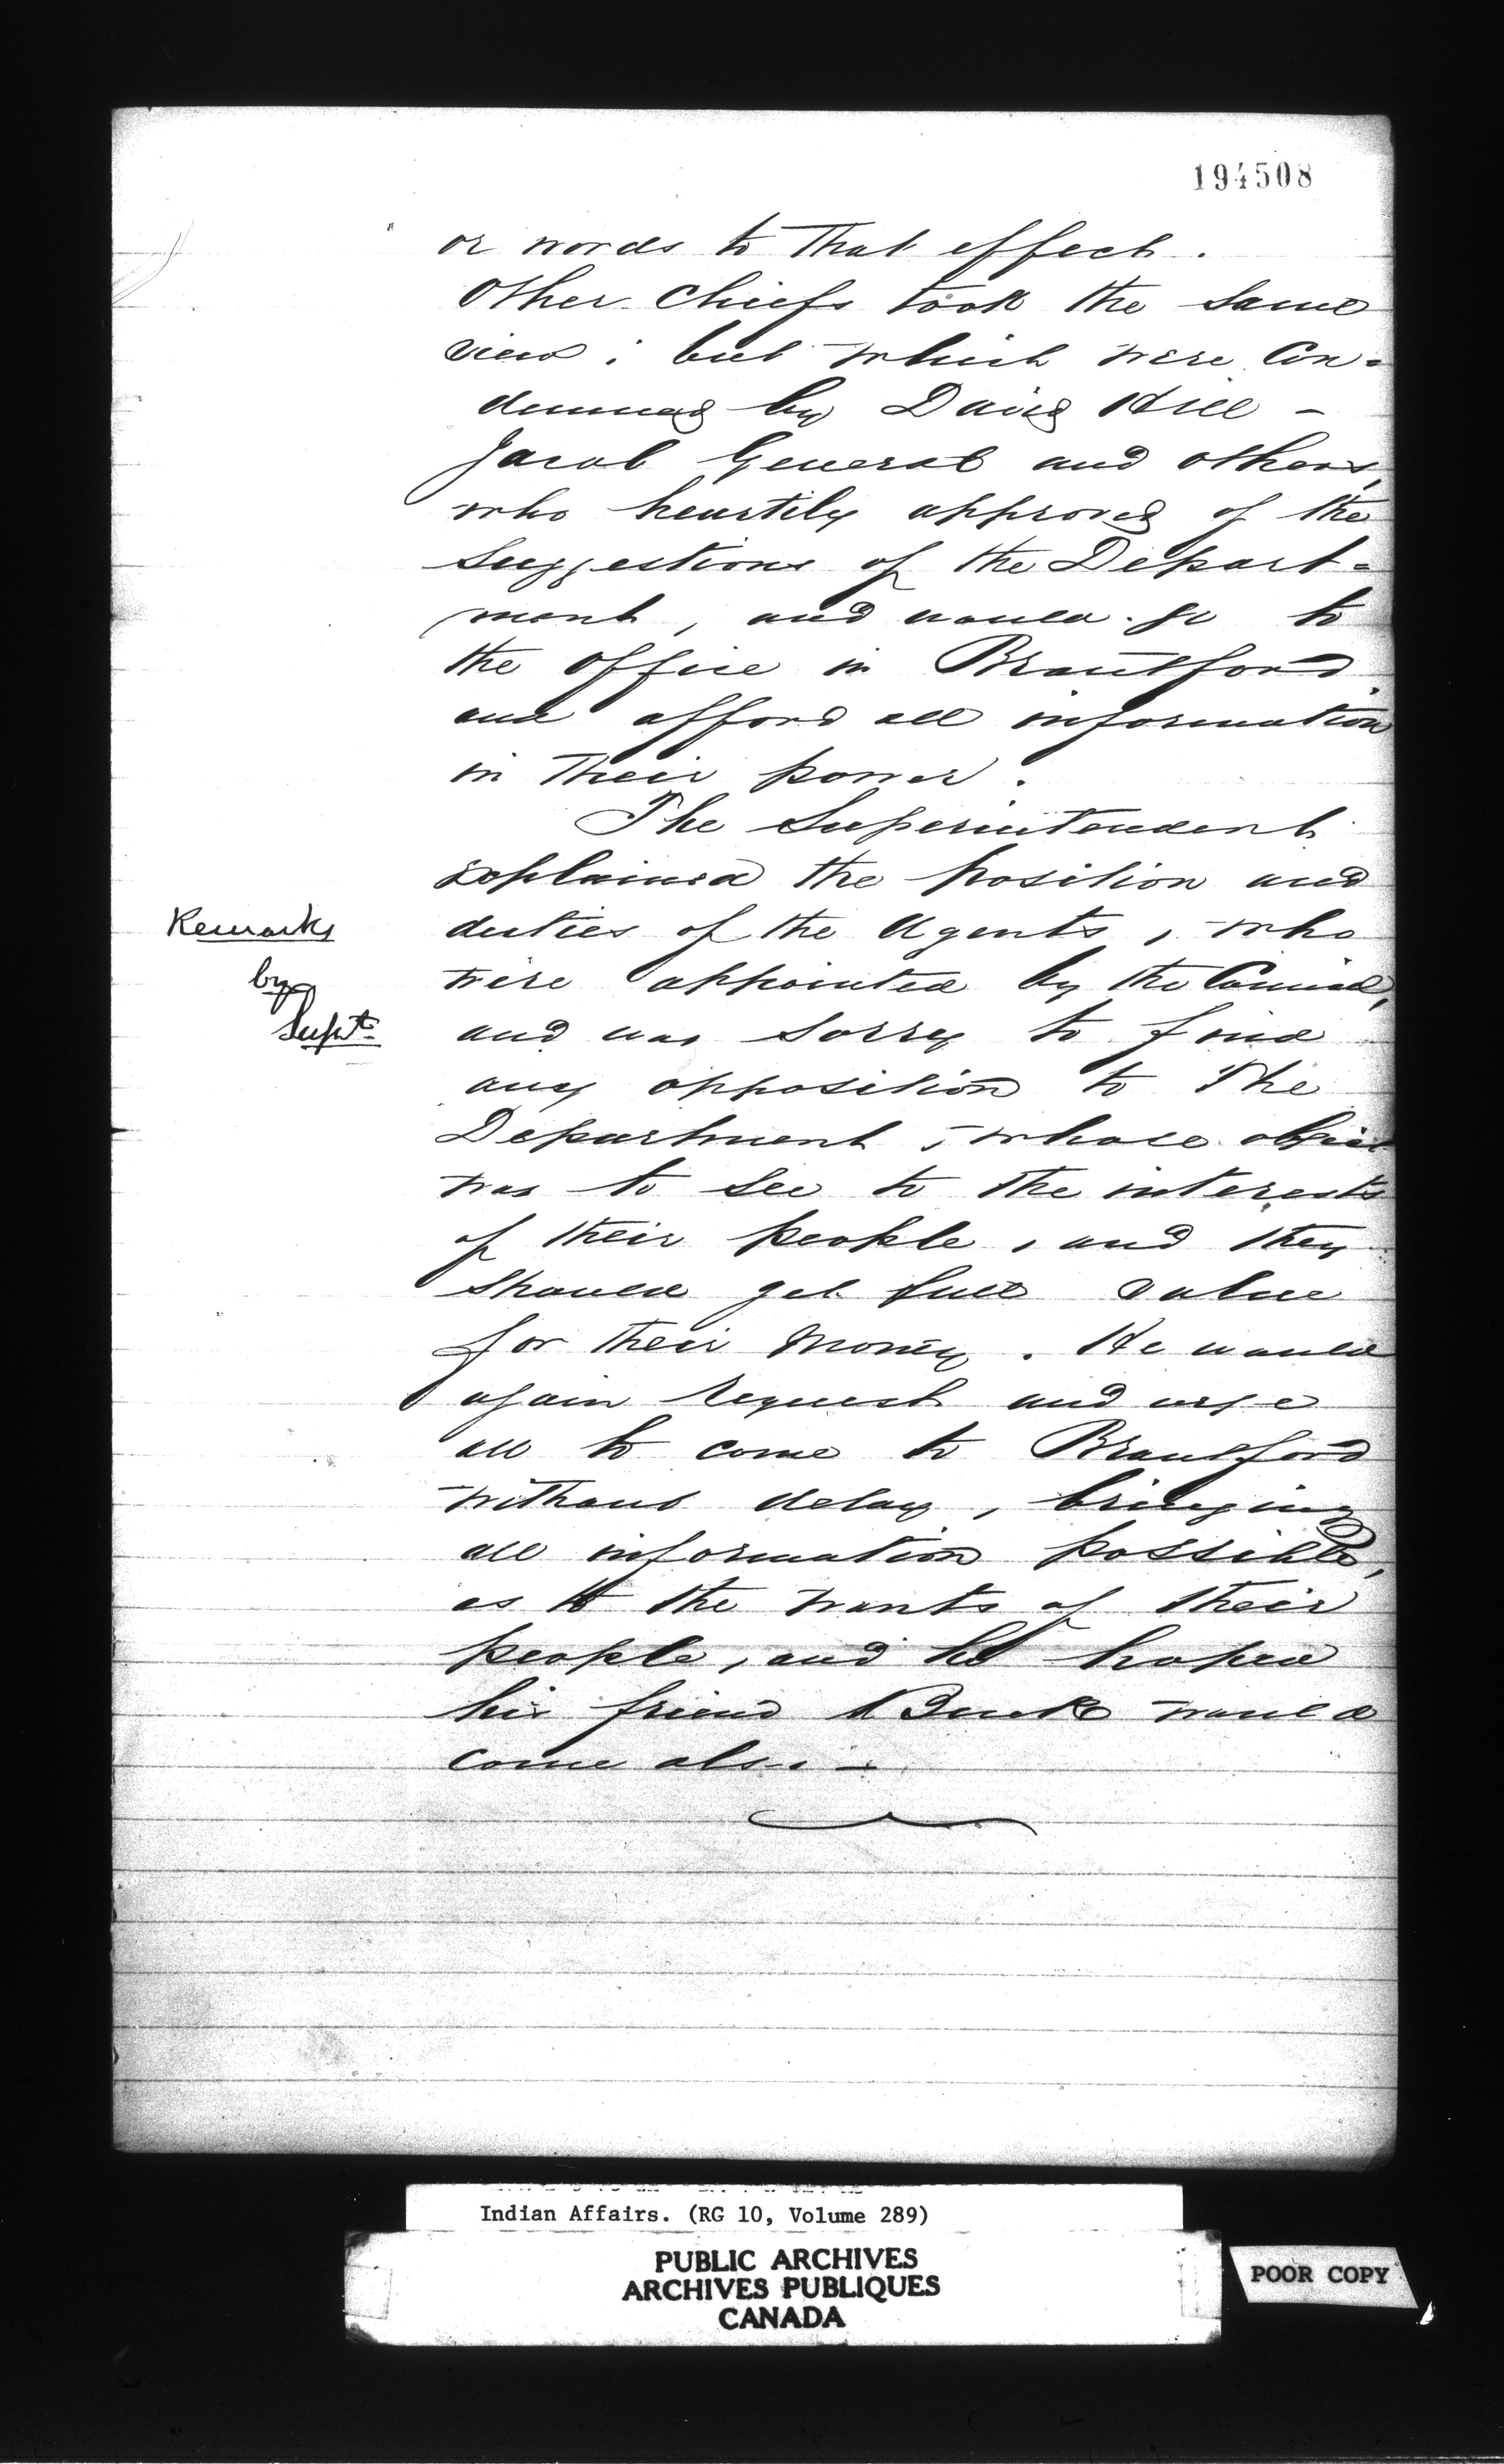 194508
or words to that effect.
Other Chiefs took the same
view; but which were Con=
demned by David Hill –
Jacob General and others,
who heartily approved of the
suggestions of the Depart=
ment, and would go to
the Office in Brantford
and afford all information
in their power.
The Superintendent
explained the position and
Remarks
by
Supt.
duties of the Agents, who
were appointed by the Council,
and was sorry to find
any opposition to the
Department, whose object
was to see to the interests
of their people, and they
should get full value
for their money. He would
again request and urge
all to come to Brantford
without delay, bringing
all information possible,
as to the wants of their
people, and he hoped
his friend Buck would
come also –
Indian Affairs. (RG 10, Volume 289)
PUBLIC ARCHIVES
ARCHIVES PUBLIQUES
CANADA
POOR COPY